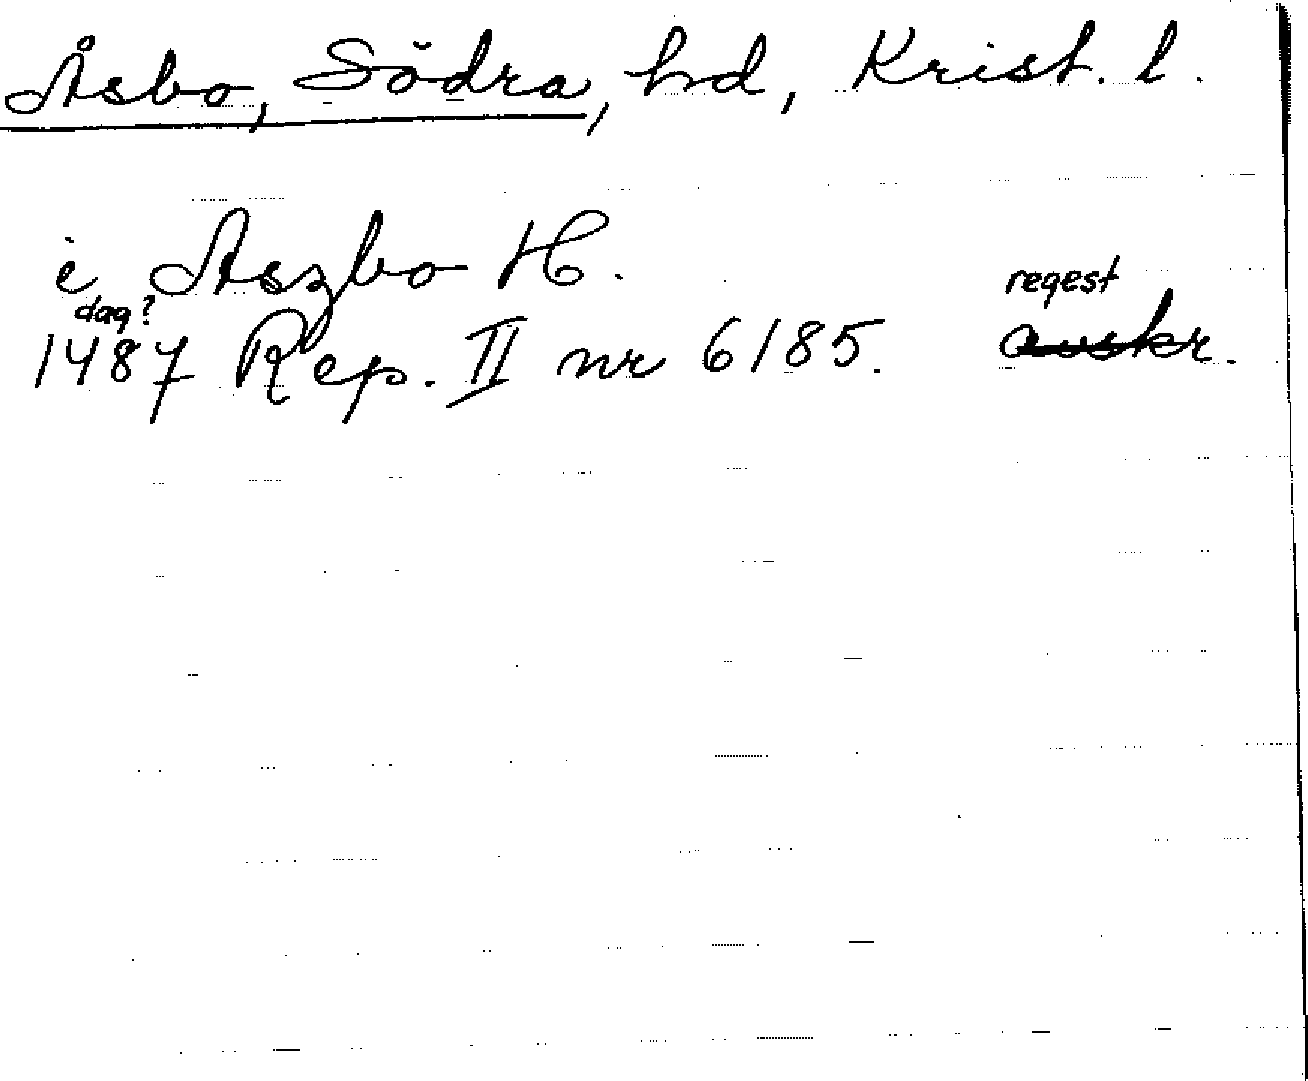 Åsbo, Södra, hd, Krist. l.
i Aszbo H.
regest
dag?
1487 Rep. II nr 6185. avskr.